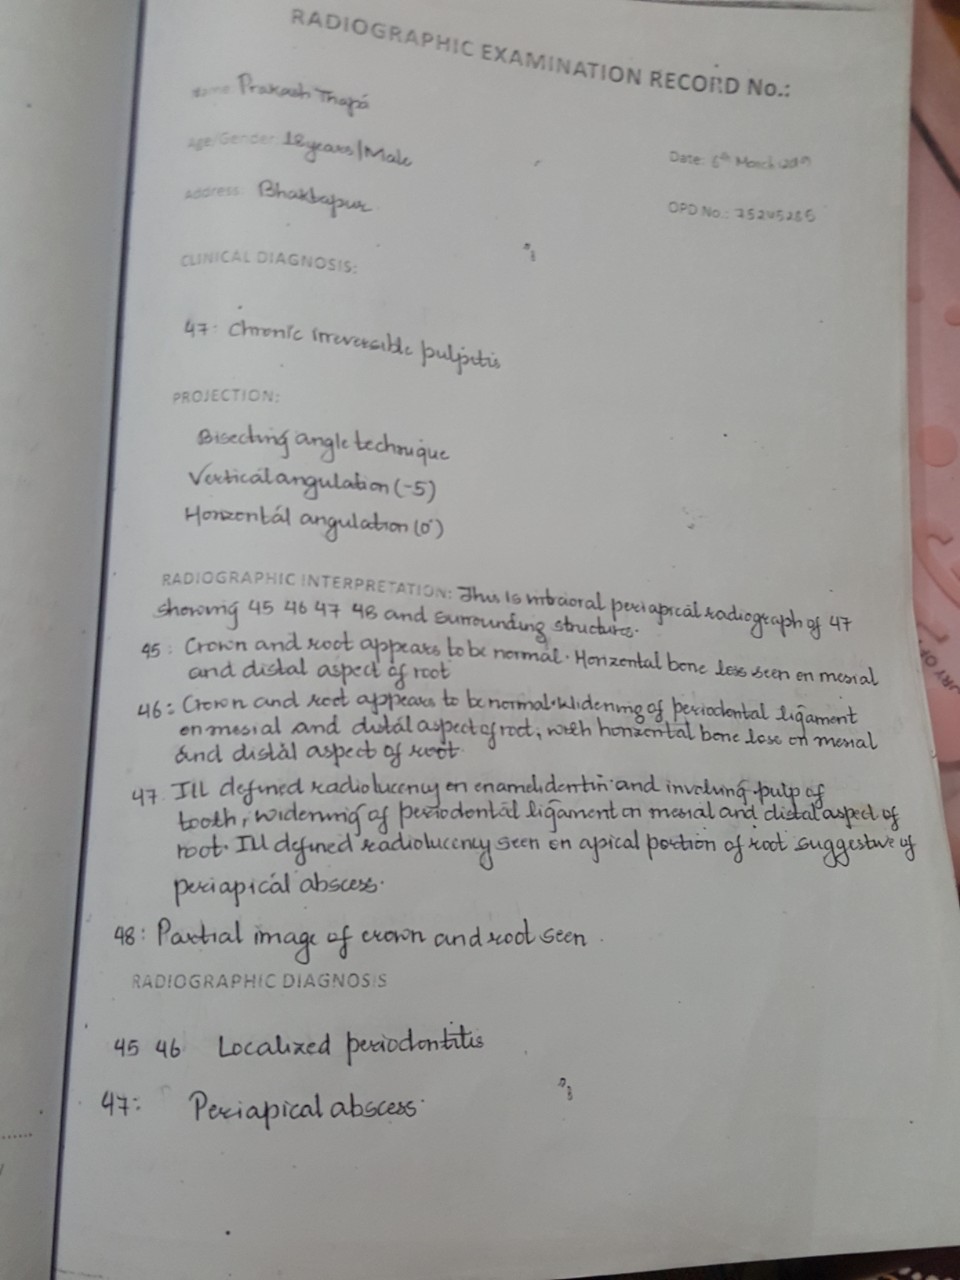 RADIOGRAPHIC EXAMINATION RECORD No.:
Name Prakash Thapa
Age/Gender: 18years/Male
Date: 6th March
Address: Bhaktapur
OPD No.: 75245286
CLINICAL DIAGNOSIS:
47: Chronic irreversible pulpitis
PROJECTION:
Bisecting angle technique
Vertical angulation (-5)
Horizontal angulation (0°)
RADIOGRAPHIC INTERPRETATION: This is intraoral periapical radiograph of 47
showing 45 46 47 48 and surrounding structures.
45: Crown and root appears to be normal. Horizontal bone loss seen on mesial
and distal aspect of root
46: Crown and root appears to be normal. Widening of periodontal ligament
on mesial and distal aspect of root, with horizontal bone loss on mesial
and distal aspect of root.
47. Ill defined radiolucency on enamel, dentin and involving pulp of
tooth, widening of periodontal ligament on mesial and distal aspect of
root. Ill defined radiolucency seen on apical portion of root suggestive of
periapical abscess.
48: Partial image of crown and root seen.
RADIOGRAPHIC DIAGNOSIS
45 46 Localized periodontitis
47: Periapical abscess.